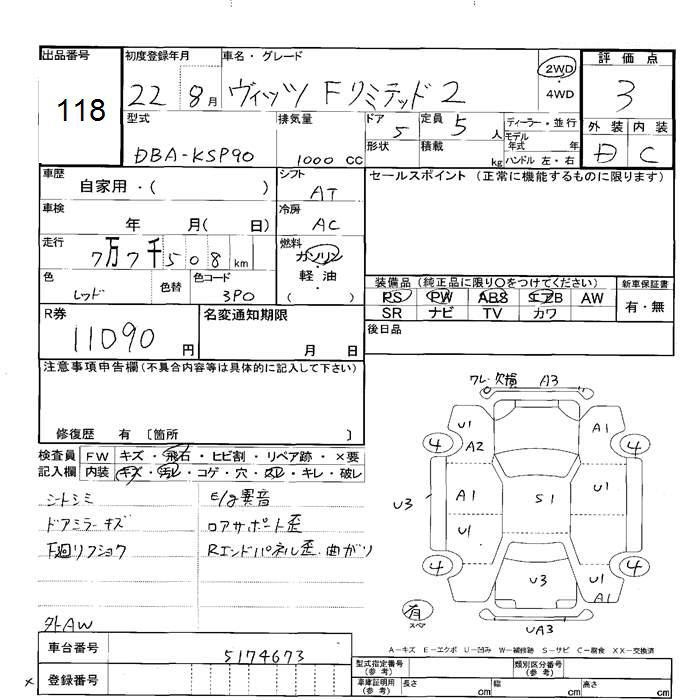 出品番号
118
初度登録年月
22 8月
車名・グレード
ヴィッツ Fリミテッド2
2WD
・
4WD
評価点
3
外装 内装
D C
型式
DBA-KSP90
排気量
1000 CC
ドア 5
形状
定員 5 人
積載 kg
ディーラー・並行
モデル
年式 年
ハンドル 左・右
車歴
自家用・( )
シフト
AT
セールスポイント (正常に機能するものに限ります)
車検
年 月( 日)
冷房
AC
走行
7万7千508km
燃料
ガソリン
・
軽油
( )
色
レッド
色替
色コード
3P0
装備品(純正品に限り○をつけてください)
PS PW ABS エアB AW
SR ナビ TV カワ
新車保証書
有・無
R券
11090円
名変通知期限
月 日
後日品
注意事項申告欄(不具合内容等は具体的に記入して下さい)
修復歴 有 〔箇所 〕
検査員
記入欄
FW キズ・飛石・ヒビ割・リペア跡・×要
内装 キズ・汚レ・コゲ・穴・スレ・キレ・破レ
シートシミ
ドアミラーキズ
下廻リフショク
外AW
E/g異音
ロアサポート歪
Rエンドパネル歪・曲がり
ワレ・欠損 A3
U1
A2
A1
4
4
A1
U1
U3
S1
U1
4
4
U3
U1
A1
有
スペア
UA3
A-キズ E-エクボ U-凹み W-補修跡 S-サビ C-腐食 XX-交換済
車台番号
5174673
×
登録番号
型式指定番号
(参考)
類別区分番号
(参考)
車庫証明用
(参考)
長さ cm
幅 cm
高さ cm